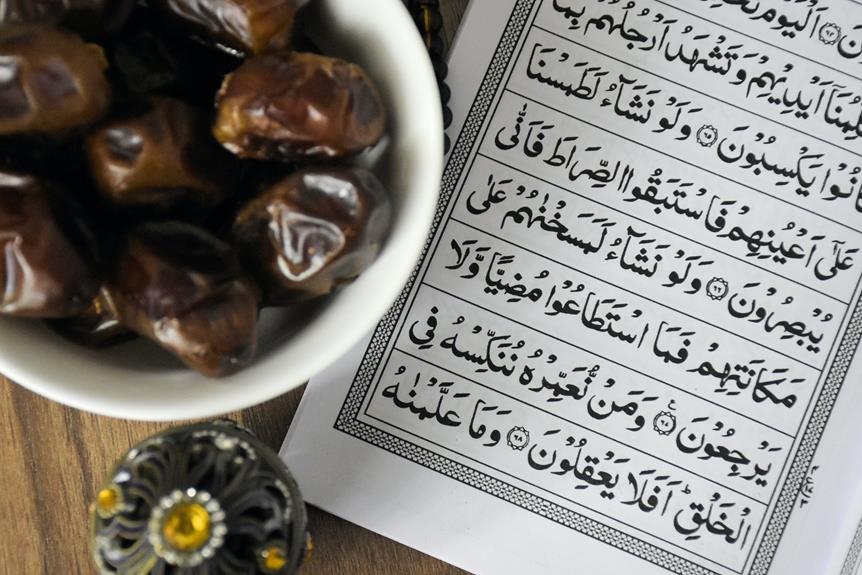 اَلْيَوْمَ
اَيْدِيْهِمْ وَتَشْهَدُ اَرْجُلُهُمْ بِمَا
كَانُوْا يَكْسِبُوْنَ ﴿٦٥﴾ وَلَوْ نَشَآءُ لَطَمَسْنَا
عَلٰٓى اَعْيُنِهِمْ فَاسْتَبَقُوا الصِّرَاطَ فَاَنّٰى
يُبْصِرُوْنَ ﴿٦٦﴾ وَلَوْ نَشَآءُ لَمَسَخْنٰهُمْ عَلٰى
مَكَانَتِهِمْ فَمَا اسْتَطَاعُوْا مُضِيًّا وَّلَا
يَرْجِعُوْنَ ﴿٦٧﴾ وَمَنْ نُّعَمِّرْهُ نُنَكِّسْهُ فِى
الْخَلْقِ ؕ اَفَلَا يَعْقِلُوْنَ ﴿٦٨﴾ وَمَا عَلَّمْنٰهُ